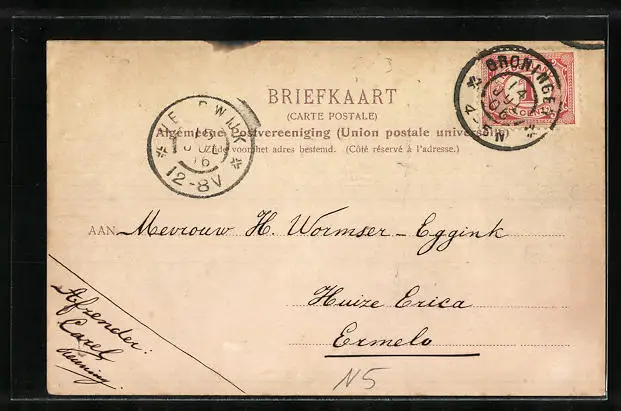 BRIEFKAART
(CARTE POSTALE)
Algemeene Postvereeniging (Union postale universelle)
Zijde voor het adres bestemd. (Côté réservé à l'adresse.)
GRONINGEN
14
4-
N
12-8V
AAN Mevrouw H. Wormser-Eggink
Huize Erica
Ermelo
Afzender:
Carel
N5